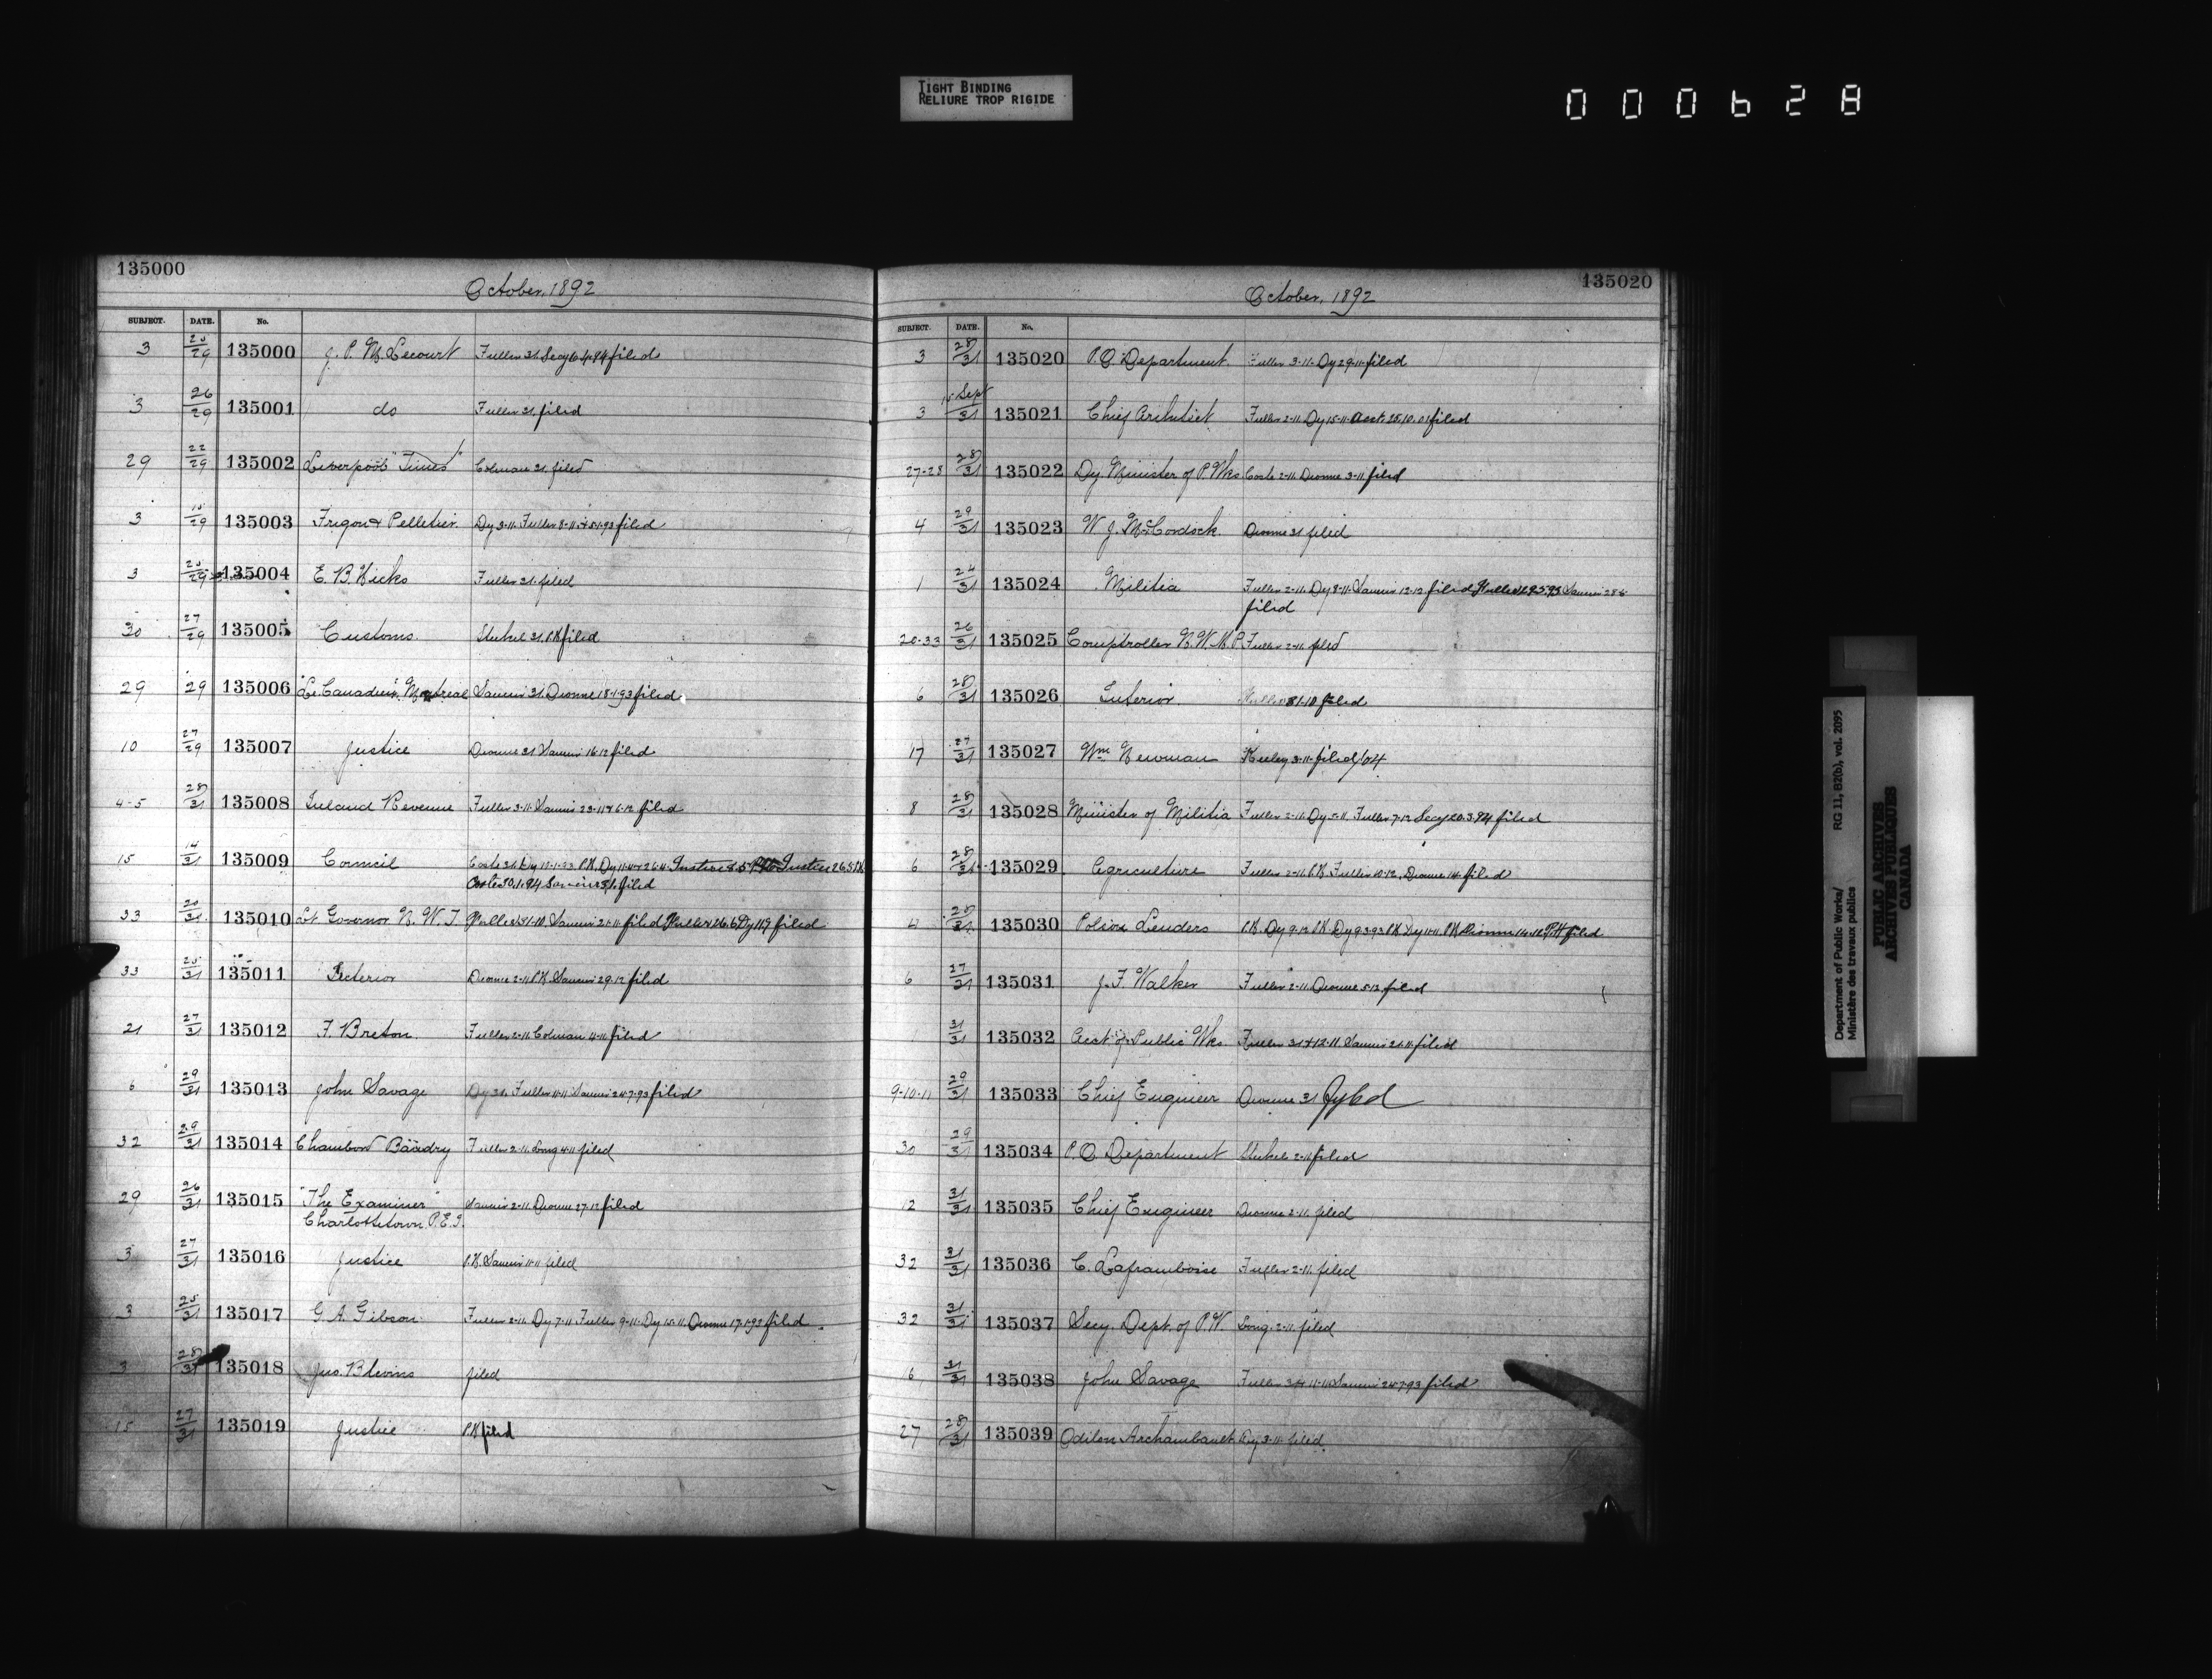 TIGHT BINDING
RELIURE TROP RIGIDE
000628
135000
October, 1892
SUBJECT. DATE. No.
3 25/29 135000 J. P. M. Lecourt Fuller 31. Secy 6.4.94 filed
3 26/29 135001 do Fuller 31. filed
29 22/29 135002 Liverpool "Times" Colman 31. filed
3 15/29 135003 Frigon & Pelletier Dy 3-11. Fuller 8-11 filed
3 25/29 135004 E. B. Hicks Fuller 31. filed
30 27/29 135005 Customs. 31. P.K. filed
29 29 135006 "Le Canadien" Montreal 31. Dionne 18-1-93 filed
10 27/29 135007 Justice Dionne 31 16-12 filed
4-5 28/31 135008 Inland Revenue Fuller 3-11. 23-11 & 6-12. filed
15 14/31 135009 Council Coste 31. Dy P.K. Dy Justice Justice 26.5 P.K.
Coste 30.1.94 filed
33 20/31 135010 Lt. Governor N. W. T. Fuller 31-10 21-11 filed Fuller 26.6 Dy 11.9 filed
33 25/31 135011 Interior Dionne 2-11 P.K. 29-12 filed
21 27/31 135012 F. Breton. Fuller 2-11. Colman 4-11 filed
6 29/31 135013 John Savage Dy 31. Fuller 11-11 24-7-93 filed
32 29/31 135014 Baudry Fuller 2-11. Long 4-11 filed
29 26/31 135015 "The Examiner" 2-11 Dionne 27-12 filed
Charlottetown, P.E.I.
3 27/31 135016 Justice P.K. 11-11 filed
3 25/31 135017 G. A. Gibson Fuller 2-11. Dy 7-11 Fuller 9-11. Dy 15-11. Dionne 17-1-93 filed
3 28/31 135018 Jno. Blevins filed
15 27/31 135019 Justice P.K. filed
135020
October, 1892
SUBJECT. DATE. No.
3 28/31 135020 P.O. Department. Fuller 3-11. Dy 29-11. filed
3 15 Sept/31 135021 Chief Architect Fuller 2-11. Dy 15-11. Acct. 25.10.01 filed
27-28 28/31 135022 Dy. Minister of P. Wks. Coste 2-11. Dionne 3-11 filed
4 29/31 135023 W. J. McCordock Dionne 31 filed
1 24/31 135024 Militia Fuller 2-11. Dy 8-11. 12-12 filed Fuller filed
20-33 26/31 135025 Comptroller N. W. M. P. Fuller 2-11. filed
6 28/31 135026 Interior. Fuller 31-10 filed
17 27/31 135027 Wm. Newman Keeley 3-11. filed/04
8 28/31 135028 Minister of Militia Fuller 2-11. Dy 5-11 Fuller 7-12 Secy 20.3.94 filed
6 28/31 135029 Agriculture Fuller 2-11. P.K. Fuller 10-12. Dionne 14. filed
25/31 135030 Polson P.K. Dy 9-12 P.K. Dy 9-3-93 P.K. Dy 11-11. P.K. Dionne filed
6 27/31 135031 J. F. Walker Fuller 2-11. Dionne 5-12 filed
31/31 135032 Acct. of Public Wks. Fuller 31 & 12-11 21-11. filed
9-10-11 29/31 135033 Chief Engineer Dionne 31 Fyled
30 29/31 135034 P.O. Department 2-11 filed
12 31/31 135035 Chief Engineer Dionne 2-11. filed
32 31/31 135036 C. Laframboise Fuller 2-11. filed
32 31/31 135037 Secy. Dept. of P.W. Long. 2-11. filed
6 31/31 135038 John Savage Fuller 31 & 11-11 24-7-93 filed
27 28/31 135039 Odilon Archambault Dy 3-11. filed
Department of Public Works/ RG 11, B2(b), vol. 2095
Ministère des travaux publics
PUBLIC ARCHIVES
ARCHIVES PUBLIQUES
CANADA